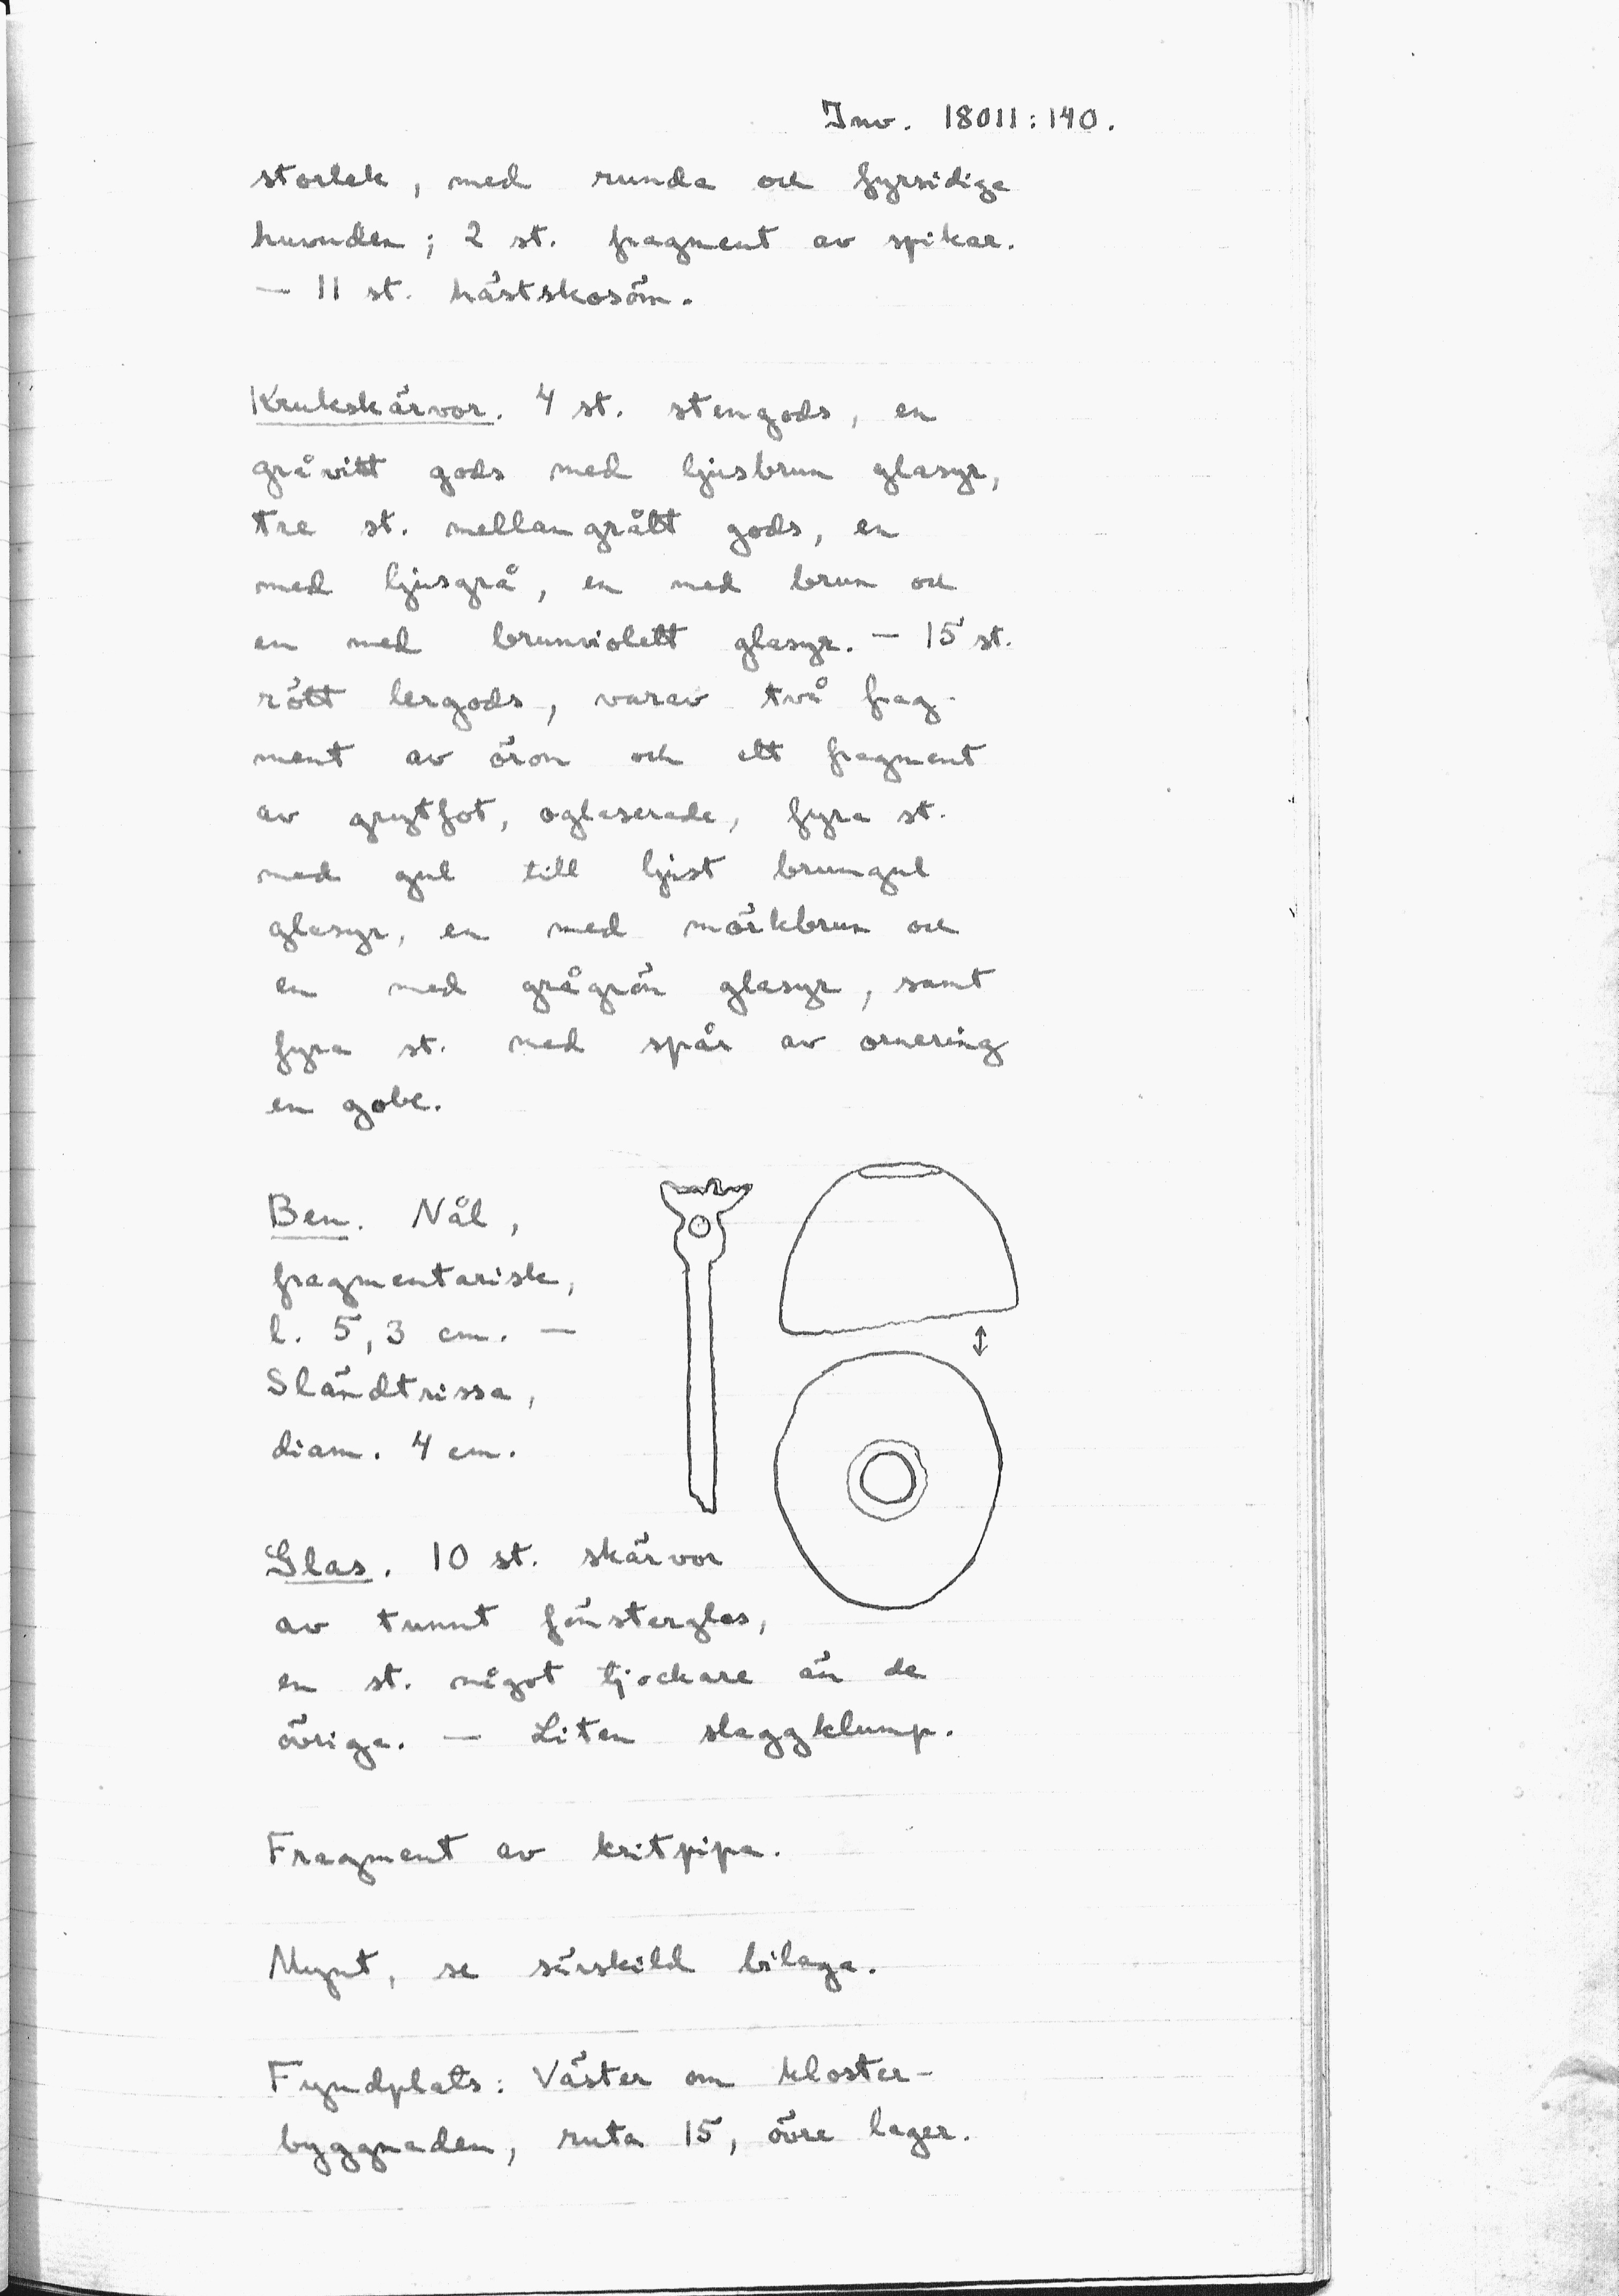 Inv. 18011:140.
storlek, med runda och fyrsidiga
huvuden; 2 st. fragment av spikar.
— 11 st. hästskosöm.
Krukskärvor. 4 st. stengods, en
gråvitt gods med ljusbrun glasyr,
tre st. mellangrått gods, en
med ljusgrå, en med brun och
en med brunviolett glasyr. — 15 st.
rött lergods, varav två frag-
ment av öron och ett fragment
av grytfot, oglaserade, fyra st.
med gul till ljust brungul
glasyr, en med mörkbrun och
en med grågrön glasyr, samt
fyra st. med spår av ornering
en gobe.
Ben. Nål,
fragmentarisk,
l. 5,3 cm. —
Sländtrissa,
diam. 4 cm.
Glas. 10 st. skärvor
av tunnt fönsterglas,
en st. något tjockare än de
övriga. — Liten slaggklump.
Fragment av kritpipa.
Mynt, se särskild bilaga.
Fyndplats: Väster om kloster-
byggnaden, ruta 15, övre lager.